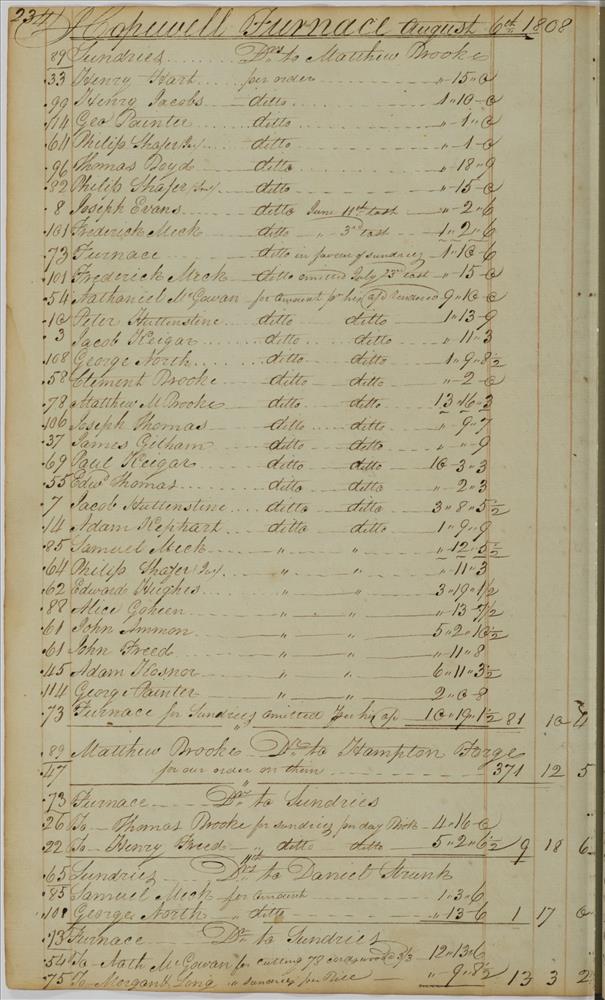 234 Hopewell Furnace August 6th 1808
89 Sundries Drs to Matthew Brooke
33 Henry Hart per order " 15 " 0
99 Henry Jacobs ditto 1 " 10 - 0
114 Geo Painter ditto " - 1 " 0
64 Philip Shafer ditto " - 1 - 0
96 Thomas Boyd ditto " 18 " 9
82 Philip Shafer ditto " - 15 - 0
8 Joseph Evans ditto June 11th last " - 2 " 6
101 Frederick Meck ditto " 3rd last 1 " 2 " 6
73 Furnace ditto in favour of sundries 1 - 10 - 6
101 Frederick Meck ditto omitted July 23rd last " - 15 - 0
54 Nathaniel McGowan for amount pr his a/c rendered 9 " 10 - 0
10 Peter Huttenstine ditto ditto 1 " 13 - 9
3 Jacob Keigar ditto ditto " 11 " 3
108 George North ditto ditto 1 " 9 " 8½
58 Clement Brooke ditto ditto " - 2 - 0
78 Matthew M Brooke ditto ditto 13 " 16 " 3
106 Joseph Thomas ditto ditto " 9 " 7
37 James Gilham ditto ditto " " 9
69 Paul Keigar ditto ditto 10 - 3 " 3
55 Edwd Thomas ditto ditto " 2 " 3
7 Jacob Huttenstine ditto ditto 3 " 8 " 5½
14 Adam Kephart ditto ditto 1 " 9 " 9
85 Samuel Meck " " " 12 " 5½
64 Philip Shafer " " " 11 " 3
62 Edward Hughes " " 3 " 19 " 1½
88 Alice Goheen " " " 13 - 7½
61 John Ammon " " 5 " 2 " 10½
61 John Freed " " " - 11 " 8
45 Adam Kosnor " " 6 " 11 " 3½
114 George Painter " " 2 " 0 - 8
73 Furnace for Sundries omitted per his a/c 10 " 19 " 1½ 81 10 4
89 Matthew Brooke Dr to Hampton Forge
47 for our order on them 371 12 5
73 Furnace Dr to Sundries
26 To Thomas Brooke for sundries per day Book 4 " 16 - 0
22 To Henry Freed " ditto ditto 5 " 2 " 6½ 9 18 6
11th
65 Sundries Drs to Daniel Strunk
85 Samuel Meck for amount 1 " 3 - 6
108 George North " ditto " 13 - 6 1 17 0
73 Furnace Dr to Sundries
54 To Nath McGowan for cutting 78 cords wood @ 3/3 12 " 13 " 6
75 To Morgan Long " sundries per Bill " - 9 " 8½ 13 3 2